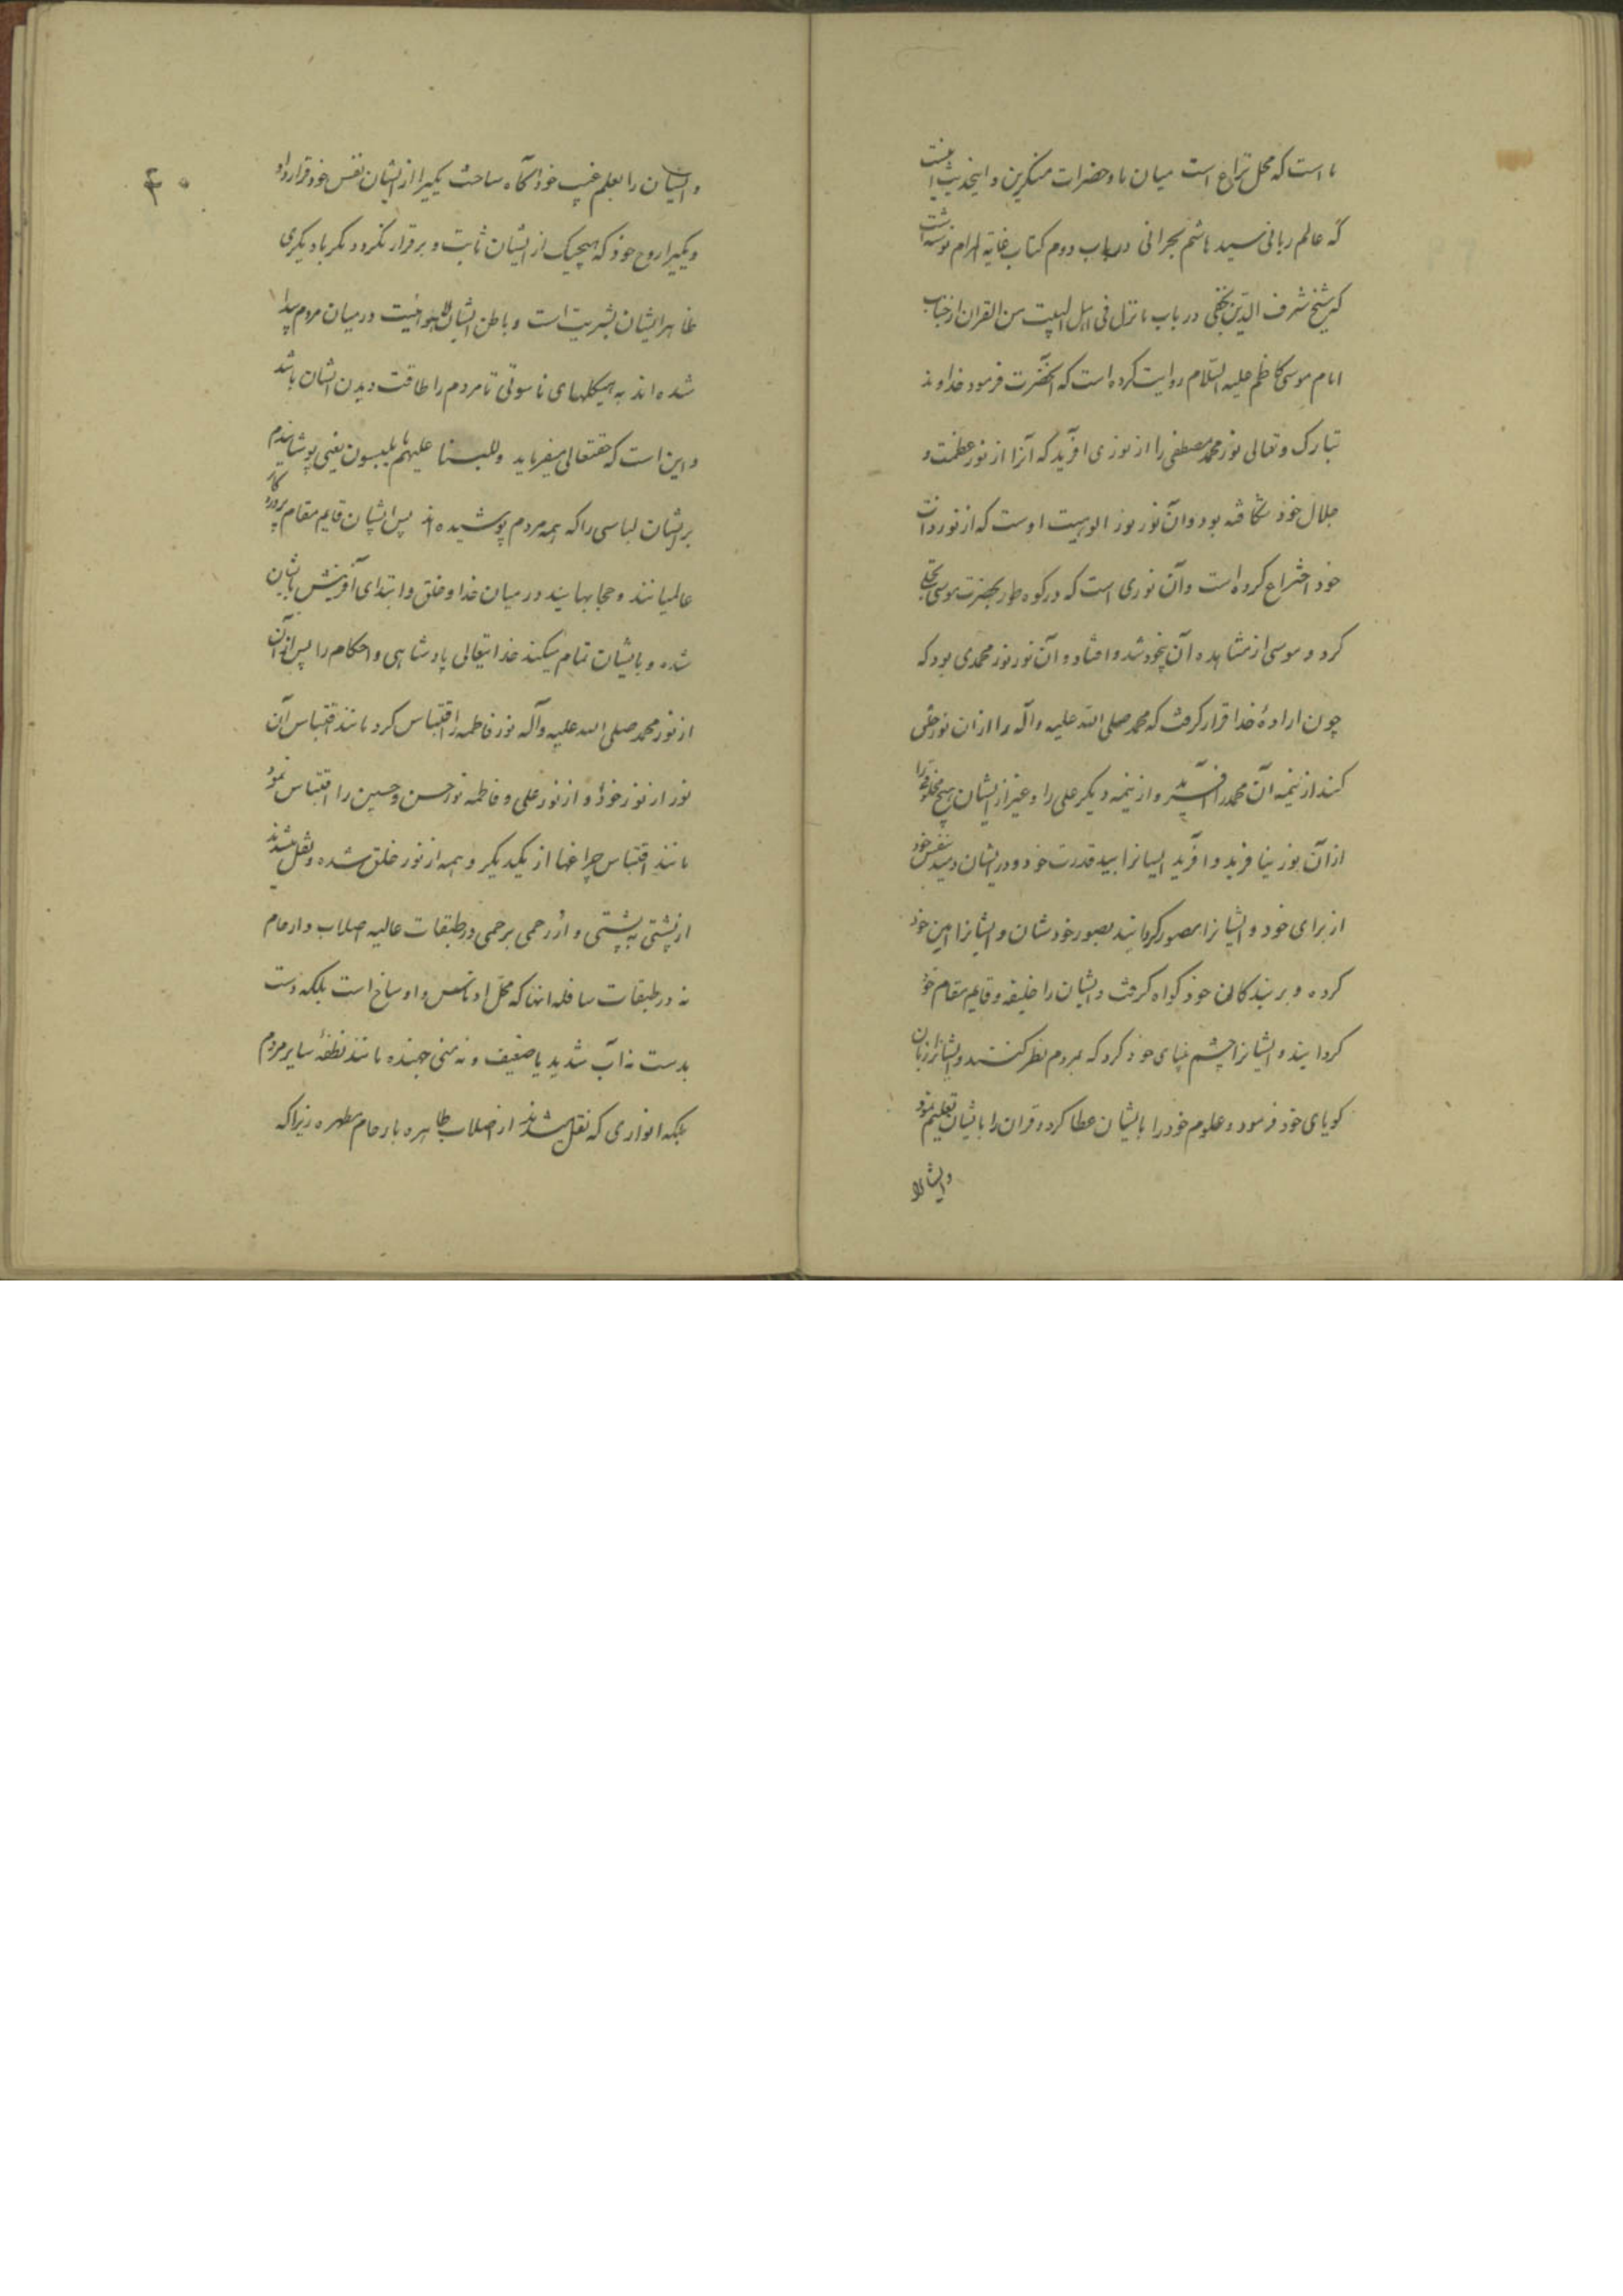 ما است که محل نزاع است میان ما و حضرات منکرین و اینحدیث اینست
که عالم ربانی سید هاشم بحرانی در باب دوم کتاب غایة المرام نوشته است
که شیخ شرف الدین نجفی در باب ما نزل فی اهل البیت من القران از جناب
امام موسی کاظم علیه السّلام روایت کرده است که آنحضرت فرمود خداوند
تبارک و تعالی نور محمد مصطفی را از نوری افرید که آنرا از نور عظمت و
جلال خود شکافته بود و آن نور نور الوهیت اوست که از نور ذات
خود اختراع کرده است و آن نوری است که در کوه طور بحضرت موسی تجلی
کرد و موسی از مشاهده آن بیخود شد و افتاد و آن نور نور محمدی بود که
چون ارادهٔ خدا قرار گرفت که محمد صلی الله علیه و آله را از ان نور خلق
کند از نیمه آن محمد را آفرید و از نیمه دیگر علی را و غیر از ایشان هیچ مخلوقی را
از آن نور نیافرید و افرید ایشانرا بید قدرت خود و در ایشان دمید بنفس خود
از برای خود و ایشانرا مصور گردانید بصور خودشان و ایشانرا امین خود
کرده و بر بندگان خود گواه گرفت و ایشان را خلیفه و قایم مقام خود
گردانید و ایشانرا چشم بینای خود کرد که بمردم نظر کنند و ایشانرا زبان
گویای خود فرمود و علوم خود را بایشان عطا کرد و قران را بایشان تعلیم نمود
و ایشانرا
۴۰
و ایشان را بعلم غیب خود آگاه ساخت یکیرا از ایشان نفس خود قرار داد
و یکیرا روح خود که هیچیک از ایشان ثابت و برقرار نگردد مگر با دیگری
ظاهر ایشان بشریت است و باطن ایشان لاهوتیت در میان مردم پیدا
شده اند به هیکلهای ناسوتی تا مردم را طاقت دیدن ایشان باشد
و این است که حقتعالی میفرماید و للبسنا علیهم ما یلبسون یعنی پوشاندیم
بر ایشان لباسی را که همه مردم پوشیده اند پس ایشان قایم مقام پروردگار
عالمیانند و حجابهایند در میان خدا و خلق و ابتدای آفرینش بایشان
شده و بایشان تمام میکند خدایتعالی پادشاهی و احکام را پس از آن
از نور محمد صلی الله علیه و آله نور فاطمه را اقتباس کرد مانند اقتباس آن
نور از نور خود و از نور علی و فاطمه نور حسن و حسین را اقتباس نمود
مانند اقتباس چراغها از یکدیگر و همه از نور خلق شده و نقل میشدند
از پشتی به پشتی و از رحمی برحمی در طبقات عالیه اصلاب و ارحام
نه در طبقات سافله انها که محل ادناس و اوساخ است بلکه دست
بدست نه آب شدید یا ضعیف و نه منی جهنده مانند نطفهٔ سایر مردم
بلکه انواری که نقل شدند از اصلاب طاهره بارحام مطهره زیرا که